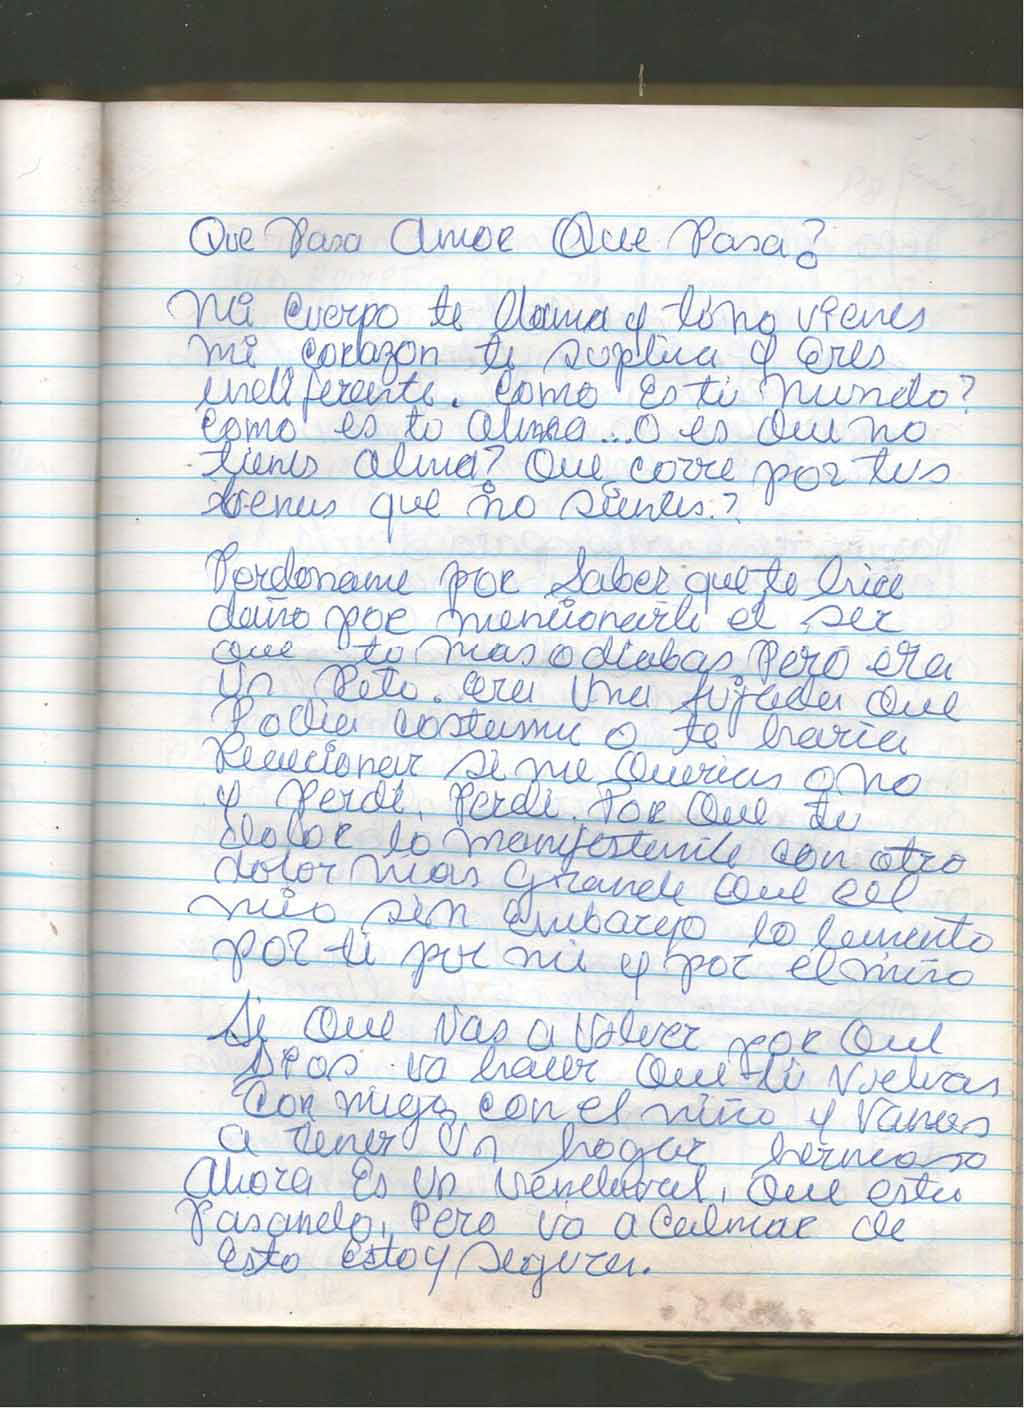 Que Pasa Amor Que Pasa?
Mi cuerpo te llama y tú no vienes
mi corazon te suplica y eres
indiferente. Como Es tu mundo?
Como es tu alma...o es que no
tienes alma? Que corre por tus
venas que no sientes.?
Perdoname por Saber que te hice
daño por mencionarte el ser
que tu mas odiabas Pero era
Un Reto. era una jugada que
Podia costarme o te haria
Reaccionar si me querias o no
y Perdi, Perdi. Por que tu
dolor lo manifestaste con otro
dolor mas grande que el
mio sin embargo lo lamento
por ti por mi y por el niño
Se Que Vas a Volver por que
Dios va hacer que tu vuelvas
Con migo, con el niño y Vamos
a tener Un hogar hermoso
Ahora Es Un Vendaval, que esta
Pasando, Pero va a Calmar de
esto estoy segura.